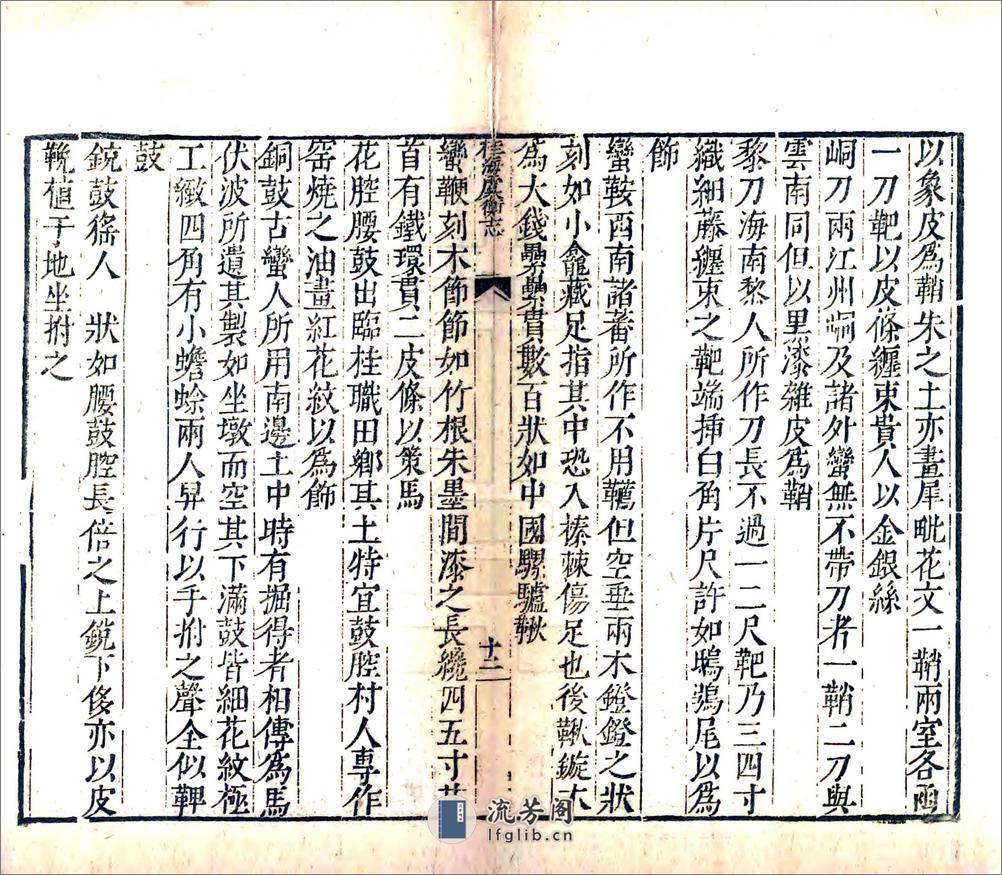 以象皮爲鞘朱之上亦畫犀毗花文一鞘兩室各函
一刀靶以皮條纏束貴人以金銀絲
峒刀兩江州峒及諸外蠻無不帶刀者一鞘二刀與
雲南同但以黑漆雜皮爲鞘
黎刀海南黎人所作刀長不過一二尺靶乃三四寸
織細藤纏束之靶端挿白角片尺許如鴟鴞尾以爲
飾
蠻鞍西南諸蕃所作不用韉但空垂兩木鐙鐙之狀
刻如小龕藏足指其中恐入榛棘傷足也後鞦鏇木
爲大錢纍纍貫數百狀如中國騾驢鞦
桂海虞衡志
十二
蠻鞭刻木節節如竹根朱墨間漆之長纔四五寸其
首有鐵環貫二皮條以策馬
花腔腰鼓出臨桂職田鄉其土特宜鼓腔村人專作
窑燒之油畫紅花紋以爲飾
銅鼓古蠻人所用南邊土中時有掘得者相傳爲馬
伏波所遺其製如坐墩而空其下滿鼓皆細花紋極
工緻四角有小蟾蜍兩人舁行以手拊之聲全似鞞
鼓
銃鼓猺人 狀如腰鼓腔長倍之上銳下侈亦以皮
鞔植于地坐拊之
流芳阁
lfglib.cn